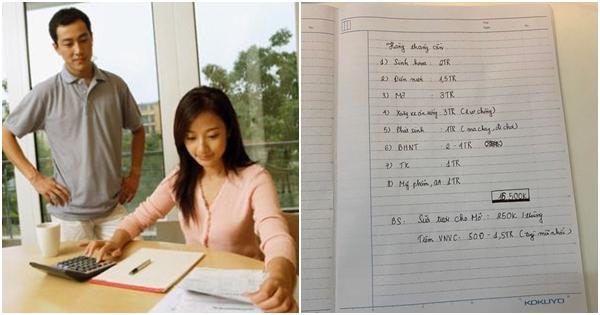 Hàng tháng cần
1) Sinh hoạt : 2TR
2) Điện nước : 1,5TR
3) Mỡ : 3TR
4) Xăng xe ăn uống : 3TR (2 vợ chồng)
5) Phát sinh : 1TR (ma chay, đi chơi)
6) BHNT : 2 - 1TR
7) TK : 1TR
8) Mỹ phẩm, QA : 1TR
15.500K
BS: Sữa tươi cho Mỡ : 250K / tháng
Tiêm VNVC : 500 - 1,5TR (tuỳ mũi nhắc)
KOKUYO